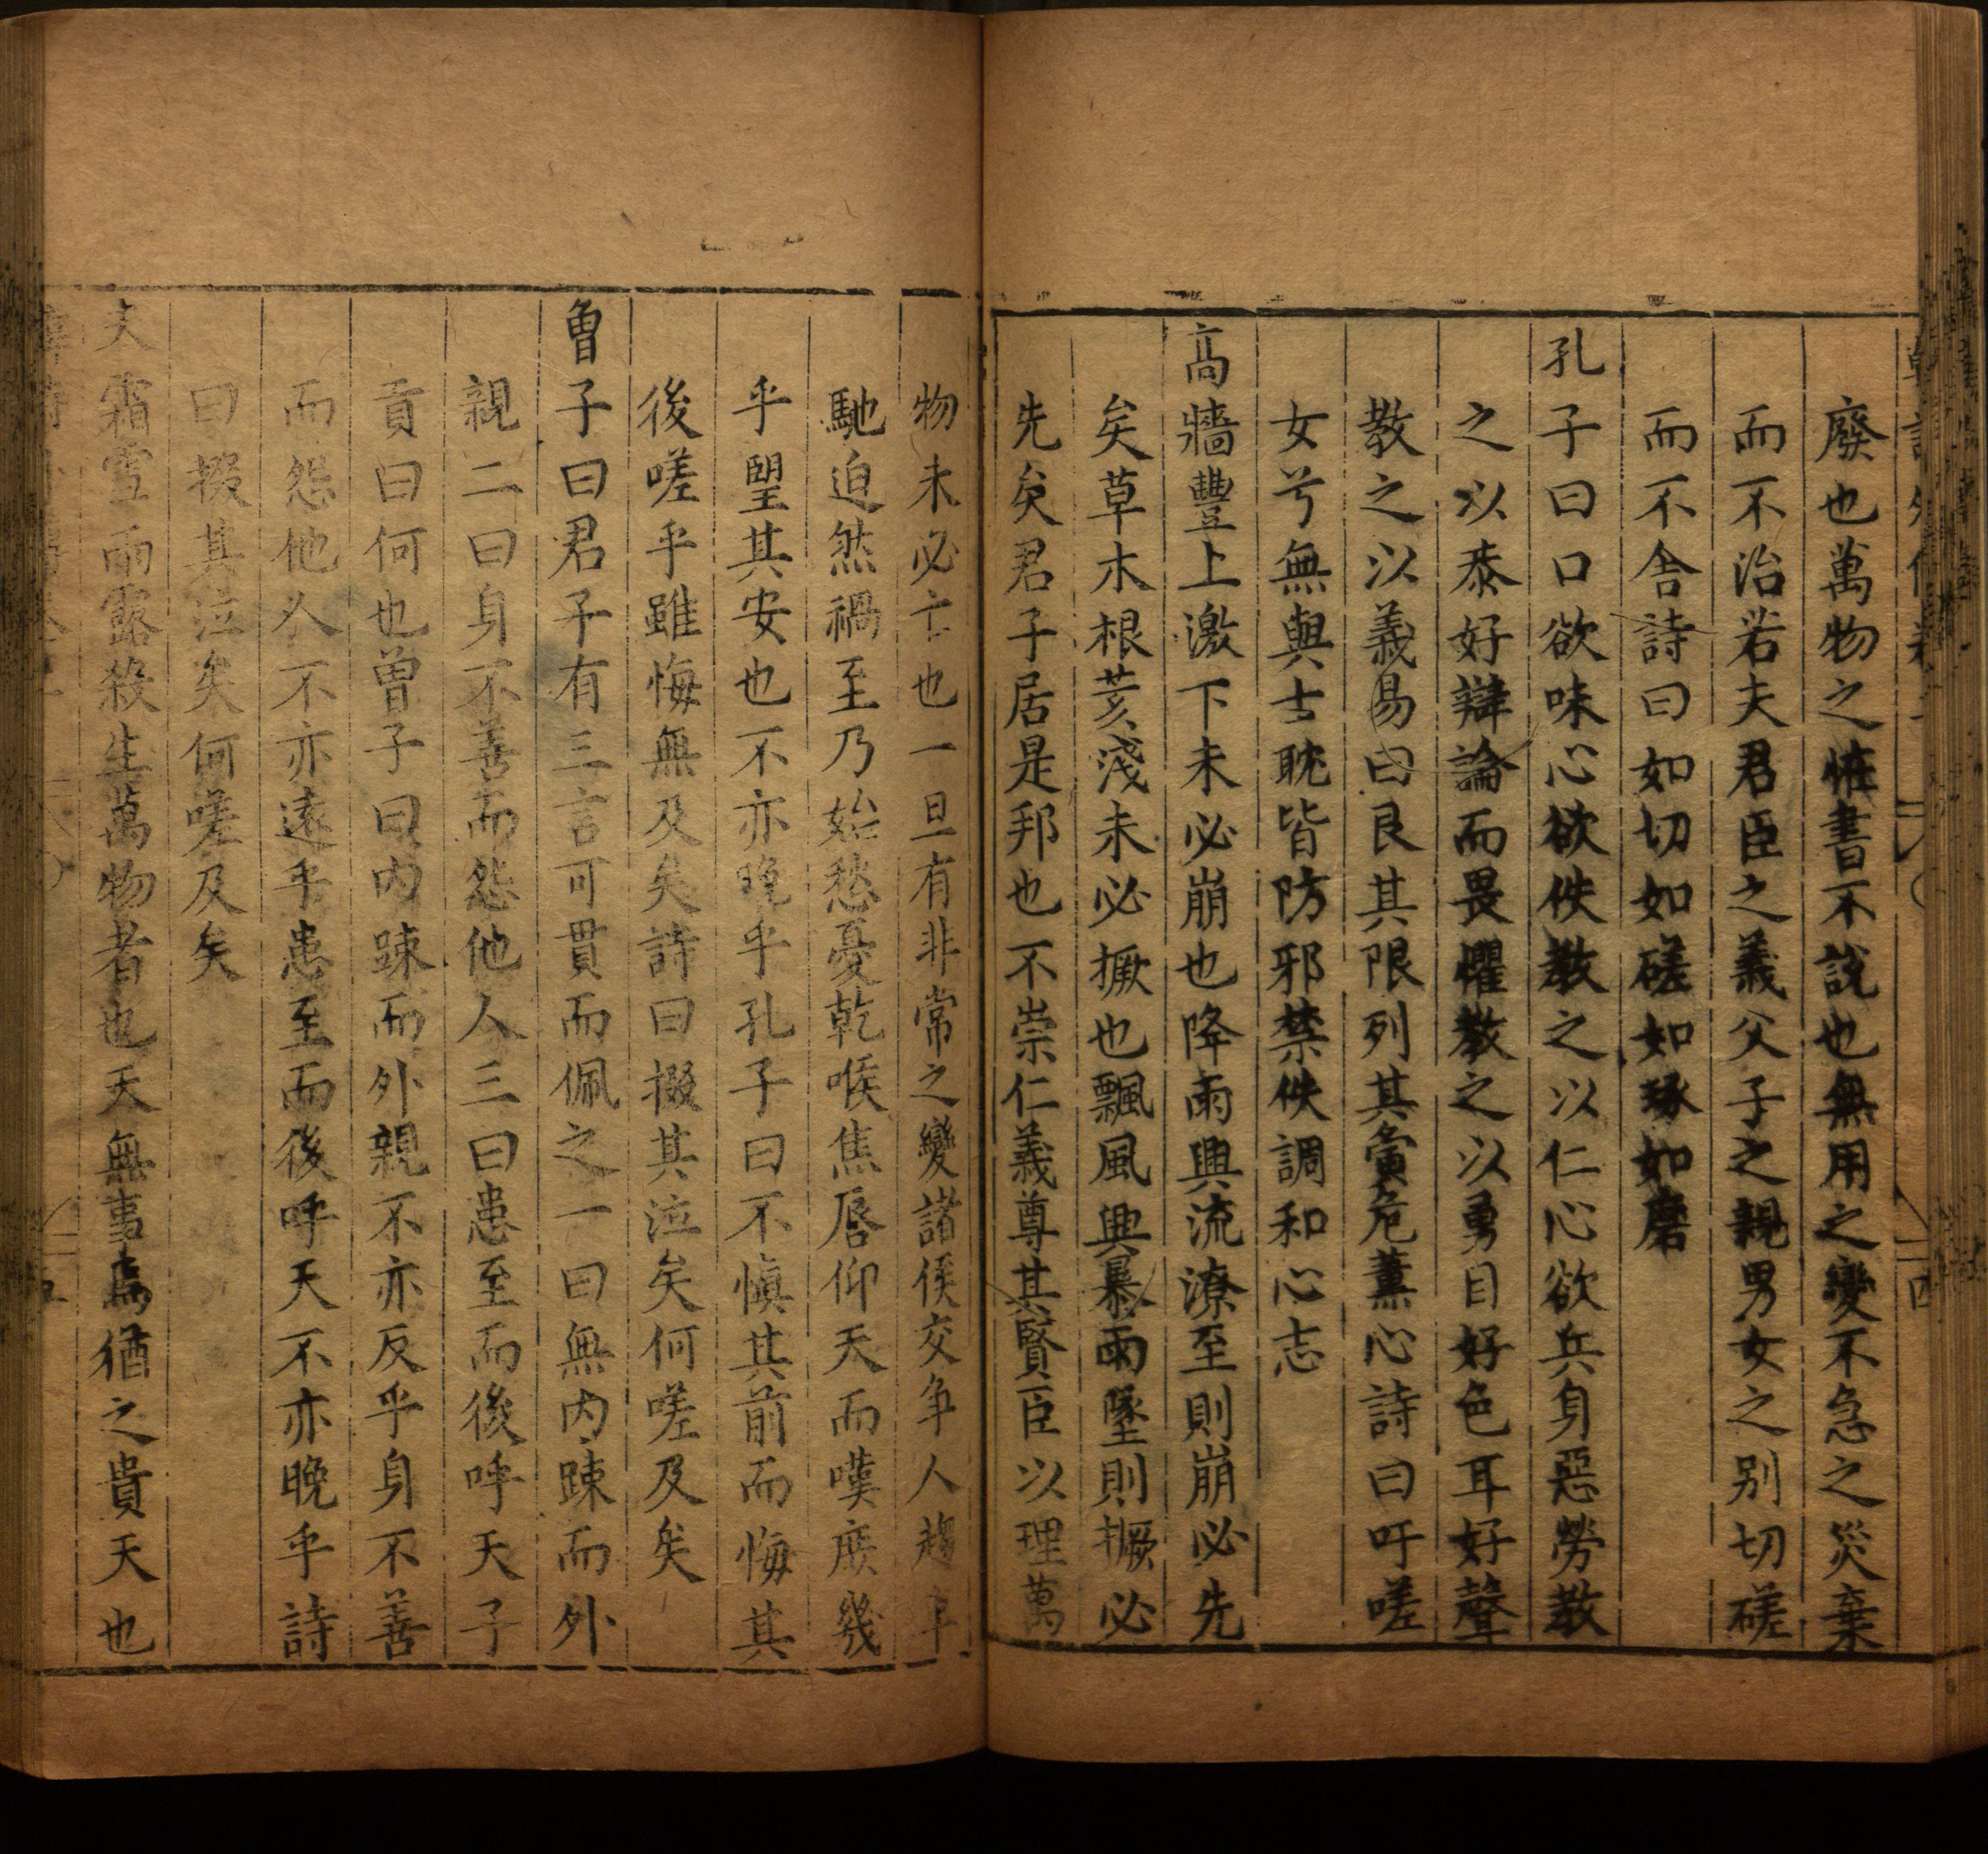 廢也萬物之恠書不說也無用之變不急之災棄
而不治若夫君臣之義父子之親男女之别切磋
而不舎詩曰如切如磋如琢如磨
孔子曰口欲味心欲佚教之以仁心欲兵身惡勞教
之以泰好辯論而畏懼教之以勇目好色耳好聲
教之以義易曰艮其限列其夤危薰心詩曰吁嗟
女兮無與士耽皆防邪禁佚調和心志
高牆豐上激下未必崩也降雨興流潦至則崩必先
矣草木根荄淺未必撅也飄風興暴雨墜則撅必
先矣君子居是邦也不崇仁義尊其賢臣以理萬
物未必亡也一旦有非常之變諸侯交争人趨車
馳迫然禍至乃始愁憂乾喉焦唇仰天而嘆庶幾
乎朢其安也不亦晚乎孔子曰不愼其前而悔其
後嗟乎雖悔無及矣詩曰掇其泣矣何嗟及矣
曾子曰君子有三言可貫而佩之一曰無内踈而外
親二曰身不善而怨他人三曰患至而後呼天子
貢曰何也曾子曰内踈而外親不亦反乎身不善
而怨他人不亦遠乎患至而後呼天不亦晚乎詩
曰掇其泣矣何嗟及矣
夫霜雪雨露殺生萬物者也天無事焉猶之貴天也